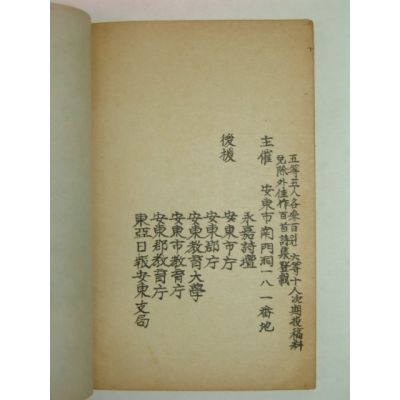 五等五人各參百원 六等十人次期投稿料
免除外佳作百首詩集登載
主催 安東市南門洞一八一番地
永嘉詩壇
後援 安東市庁
安東郡庁
安東教育大學
安東市教育庁
安東郡教育庁
東亞日報安東支局